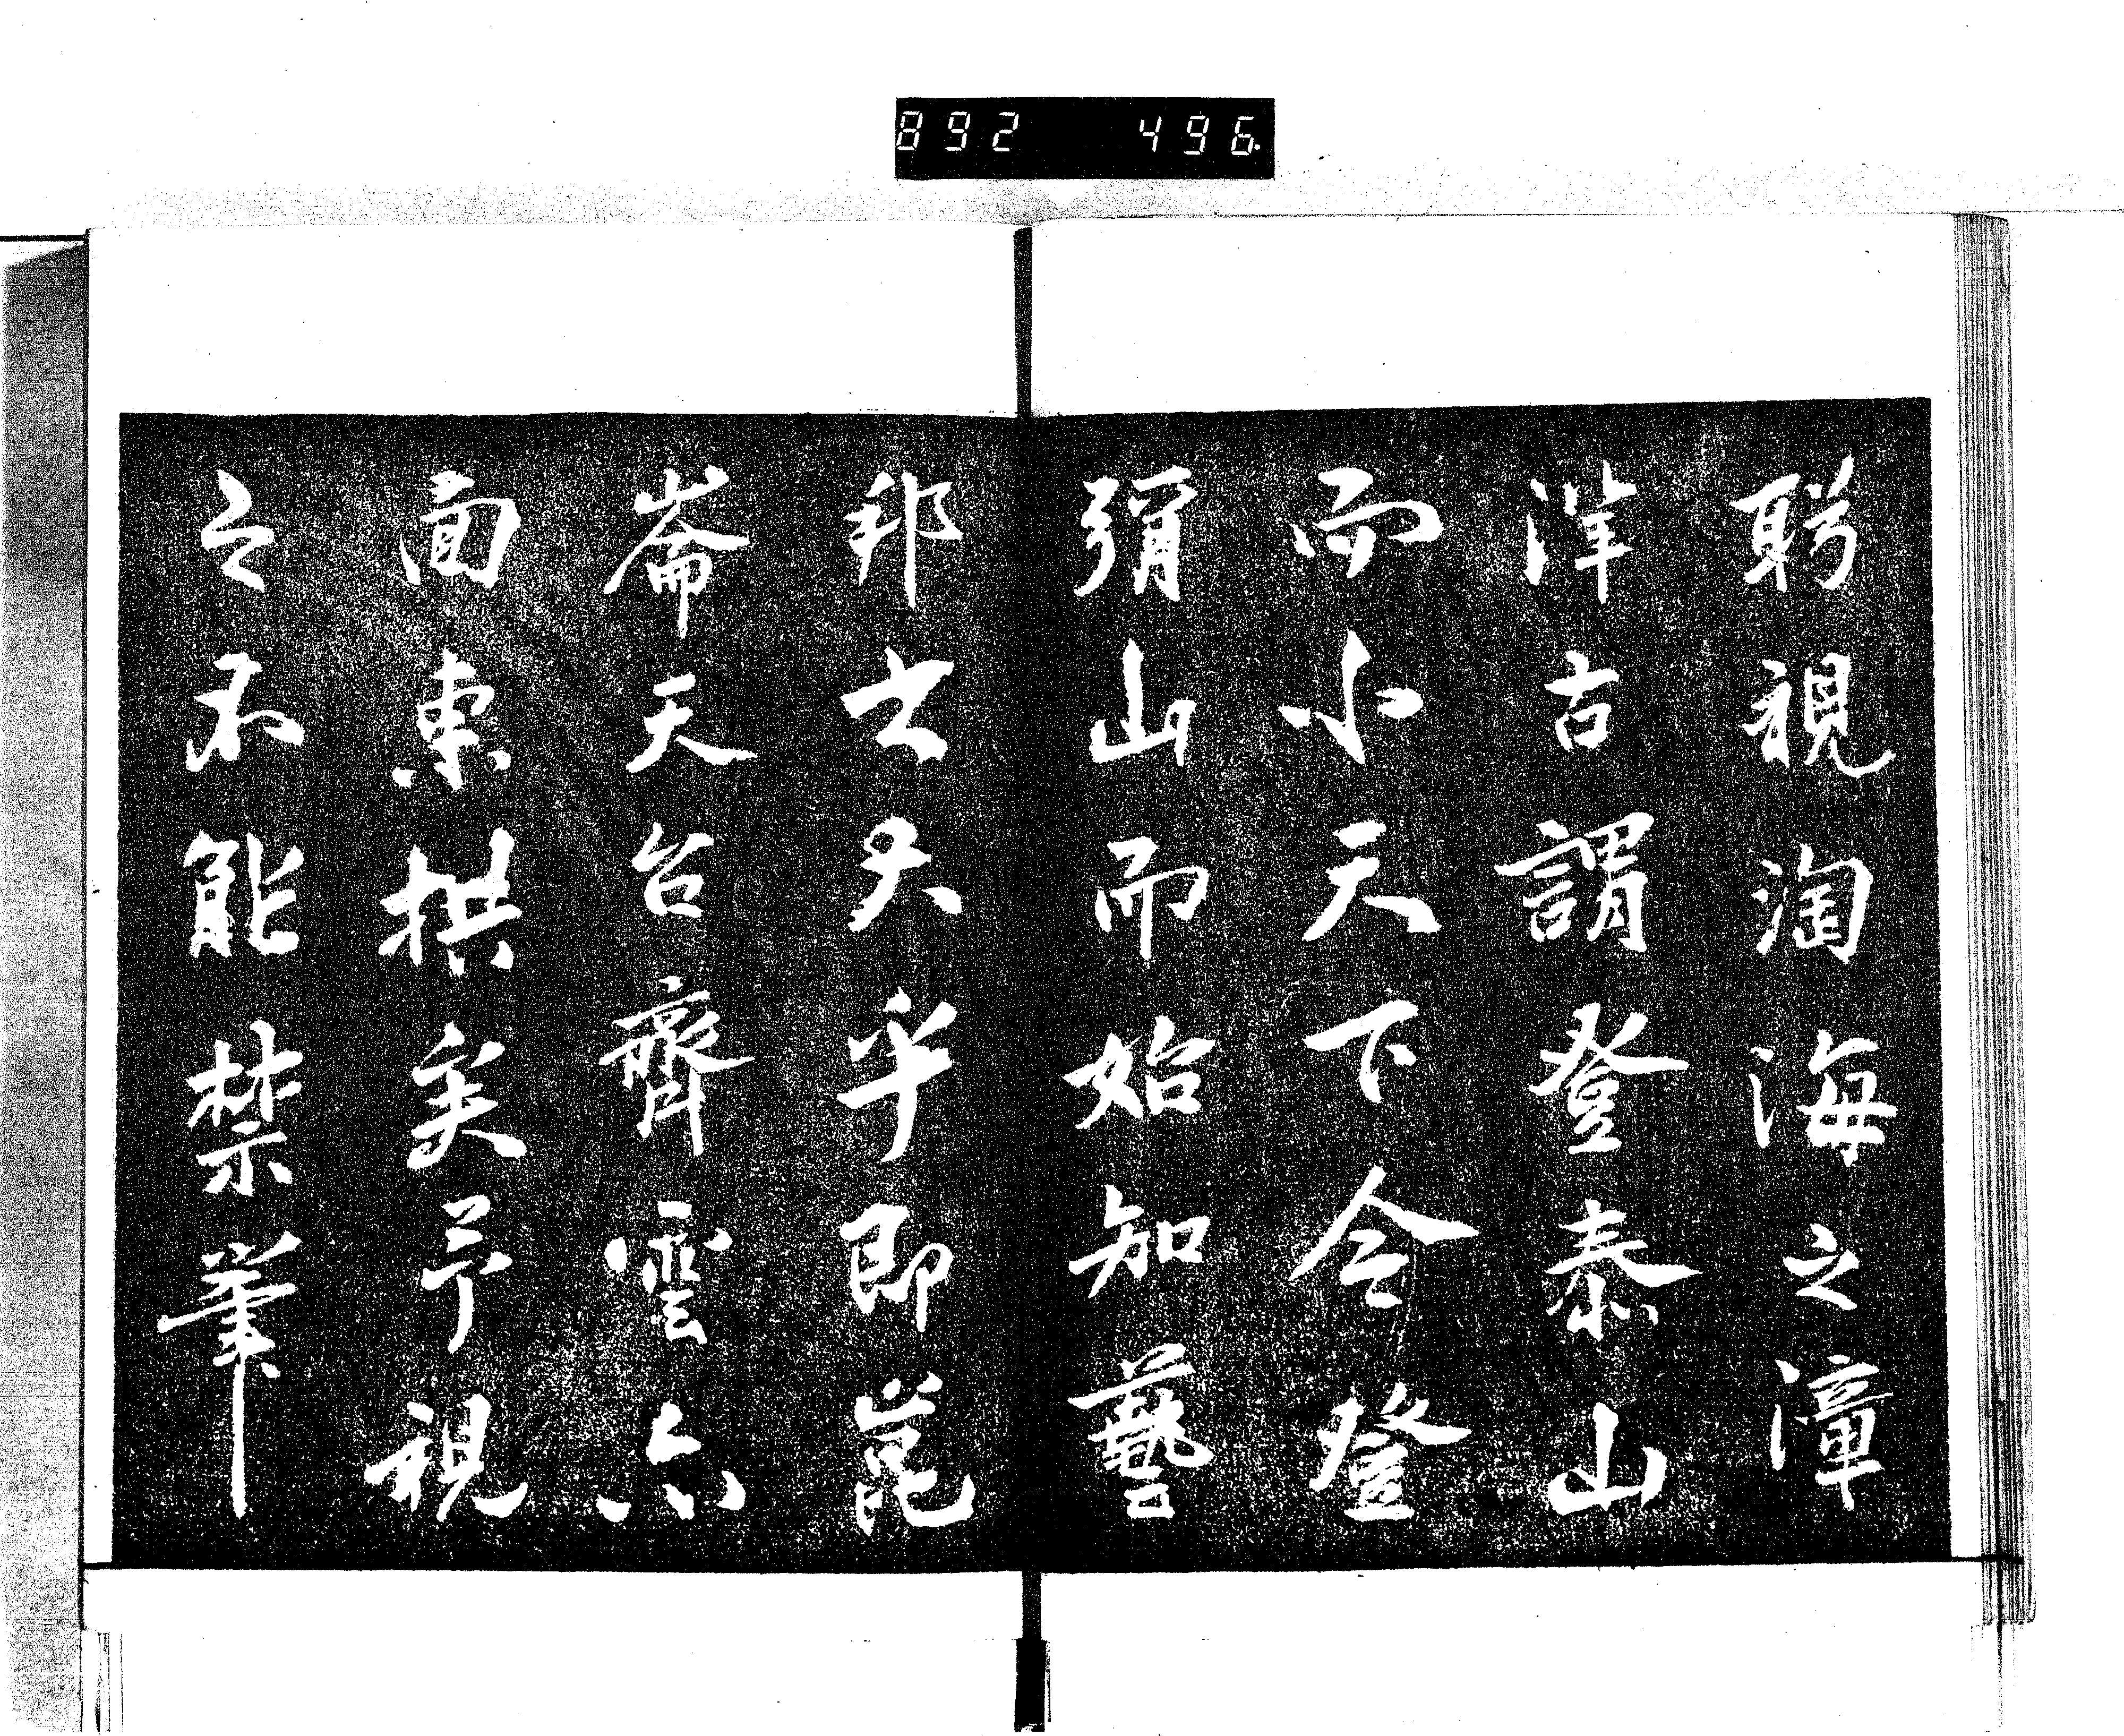 892 496
視淘海之漳
洋古謂登泰山
而小天下今登
彌山而始知藝
邦大乎即崑
崙天台齊雲六
面東拱矣予視
之不能禁筆